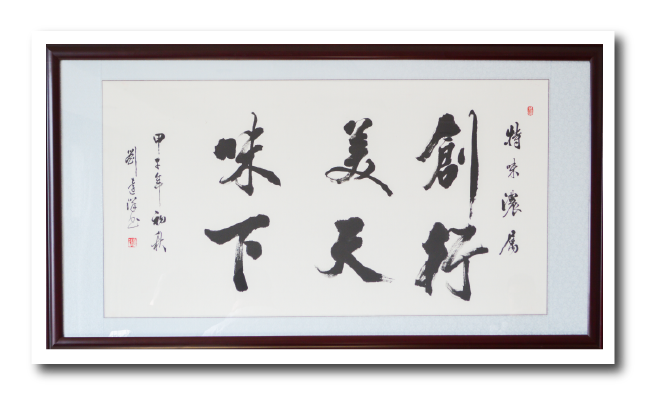 特味濃
創美味
行天下
甲午年初秋
劉